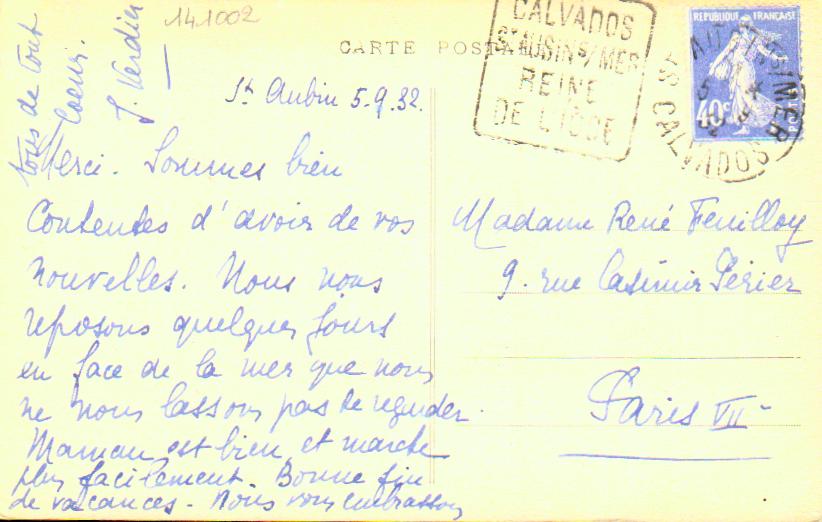 141002
CARTE POSTALE
CALVADOS
St AUBIN S/MER
REINE
DE L'IODE
REPUBLIQUE FRANÇAISE
40c
POSTES
CALVADOS
St Aubin 5.9.32.
Merci. Sommes bien
Contentes d'avoir de vos
nouvelles. Nous nous
reposons quelques jours
en face de la mer que nous
ne nous lassons pas de regarder.
Maman est bien et marche
plus facilement. Bonne fin
de vacances. Nous vous embrassons
tous de tout
Coeur.
J. Verdier
Madame René Feuilloy
9. rue Casimir Périer
Paris VII